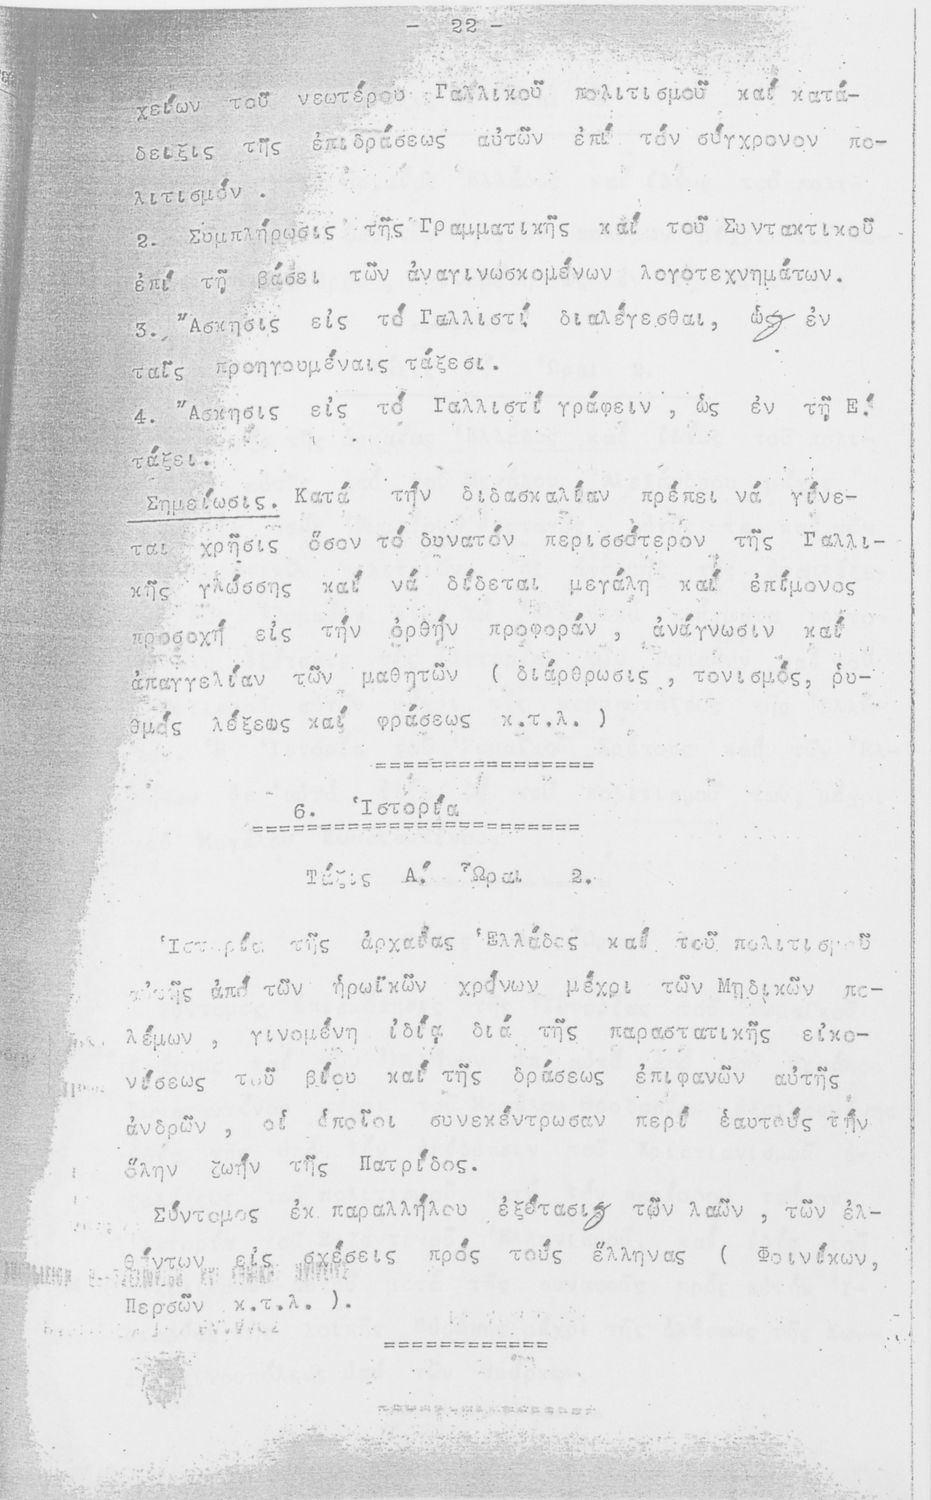 - 22 -
χείων τοῦ νεωτέρου Γαλλικοῦ πολιτισμοῦ καί κατά-
δειξις τῆς ἐπιδράσεως αὐτῶν ἐπί τόν σύγχρονον πο-
λιτισμόν .
2. Συμπλήρωσις τῆς Γραμματικῆς καί τοῦ Συντακτικοῦ
ἐπί τῇ βάσει τῶν ἀναγινωσκομένων λογοτεχνημάτων.
3. Ἄσκησις εἰς τό Γαλλιστί διαλέγεσθαι, ὡς ἐν
ταῖς προηγουμέναις τάξεσι.
4. Ἄσκησις εἰς τό Γαλλιστί γράφειν , ὡς ἐν τῇ Ε΄.
τάξει.
Σημείωσις. Κατά τήν διδασκαλίαν πρέπει νά γίνε-
ται χρῆσις ὅσον τό δυνατόν περισσότερον τῆς Γαλλι-
κῆς γλώσσης καί νά δίδεται μεγάλη καί ἐπίμονος
προσοχή εἰς τήν ὀρθήν προφοράν , ἀνάγνωσιν καί
ἀπαγγελίαν τῶν μαθητῶν ( διάρθρωσις , τονισμός, ῥυ-
θμός λέξεως καί φράσεως κ.τ.λ. )
================
6. Ἱστορία
========================
Τάξις Α΄. Ὧραι 2.
Ἱστορία τῆς ἀρχαίας Ἑλλάδος καί τοῦ πολιτισμοῦ
αὐτῆς ἀπό τῶν ἡρωϊκῶν χρόνων μέχρι τῶν Μηδικῶν πο-
λέμων , γινομένη ἰδίᾳ διά τῆς παραστατικῆς εἰκο-
νίσεως τοῦ βίου καί τῆς δράσεως ἐπιφανῶν αὐτῆς
ἀνδρῶν , οἱ ὁποῖοι συνεκέντρωσαν περί ἑαυτούς τήν
ὅλην ζωήν τῆς Πατρίδος.
Σύντομος ἐκ παραλλήλου ἐξέτασις τῶν λαῶν , τῶν ἐλ-
θόντων εἰς σχέσεις πρός τούς ἕλληνας ( Φοινίκων,
Περσῶν κ.τ.λ. ).
============